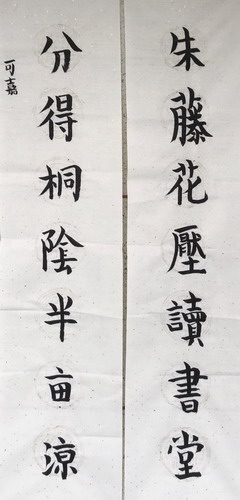 朱藤花壓讀書堂
分得桐陰半亩凉
可嘉